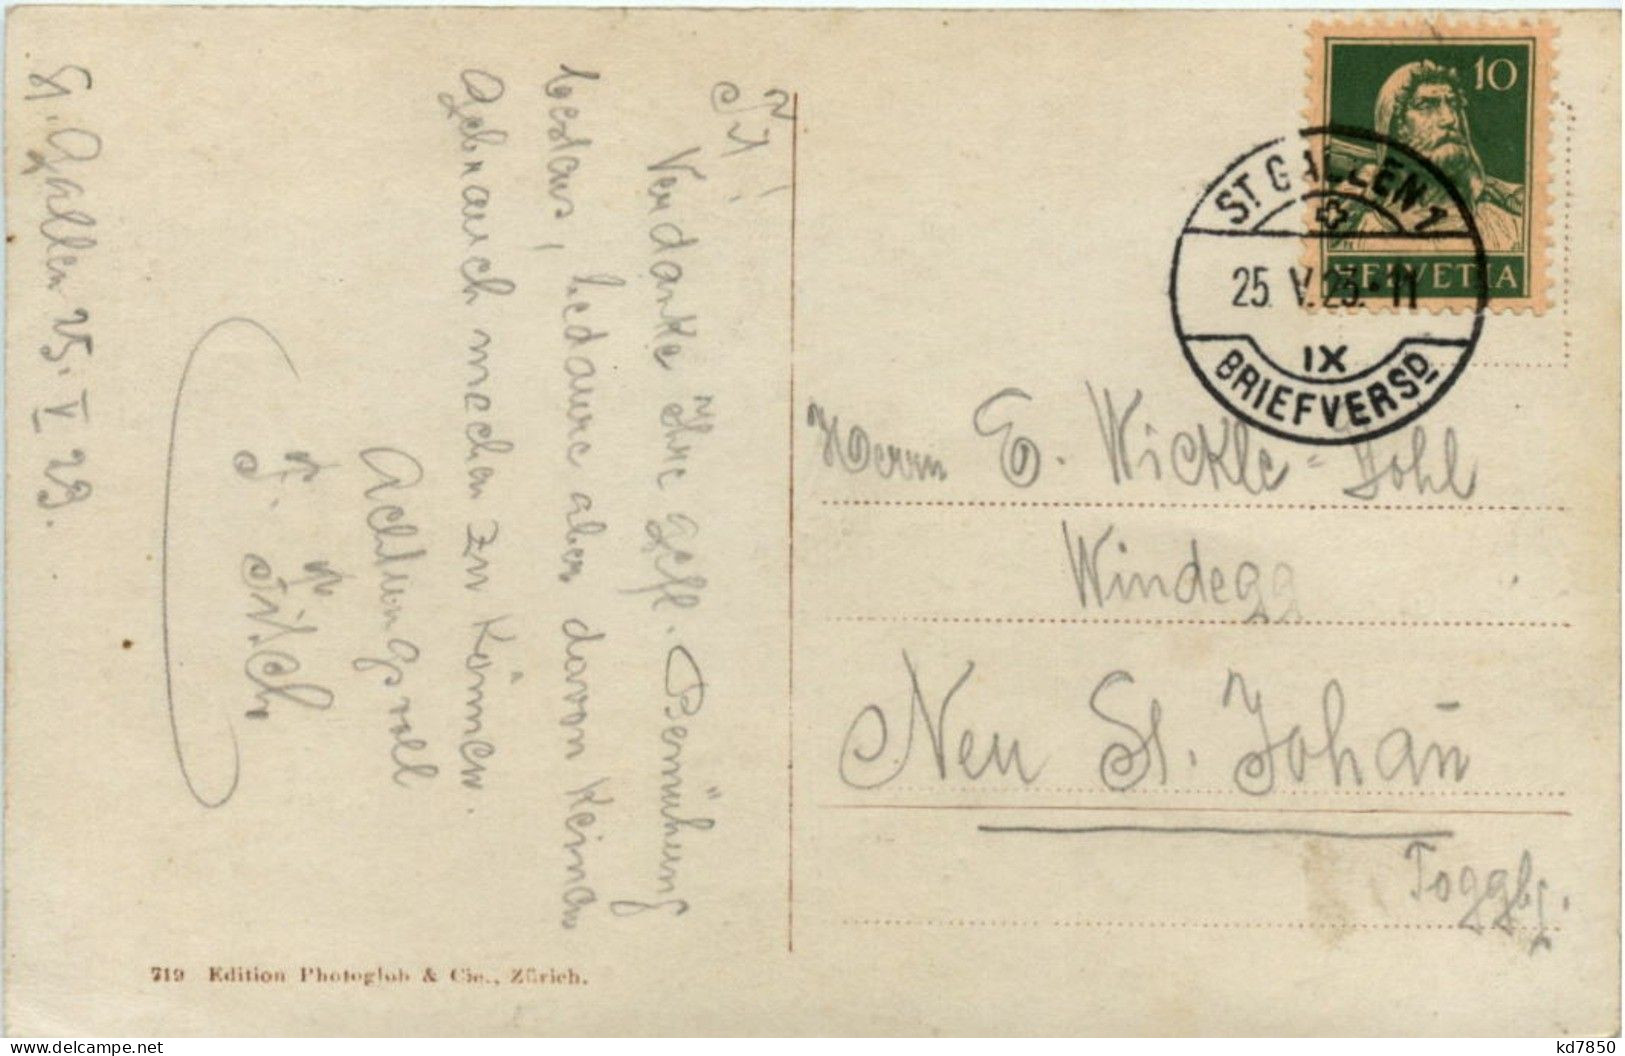 St. Gallen 25. V 29.
T. T!
Verdanke Ihre gefl. Bemühung
bestens, bedaure aber davon keinen
gebrauch machen zu können.
Achtungsvoll
10
HELVETIA
ST GALLEN 1
25. V. 11
IX
BRIEFVERSD.
Herrn E. Wickle-Bohl
Windegg
Neu St. Johañ
Toggbg.
719 Edition Photoglob & Cie., Zürich.
delcampe.net
kd7850